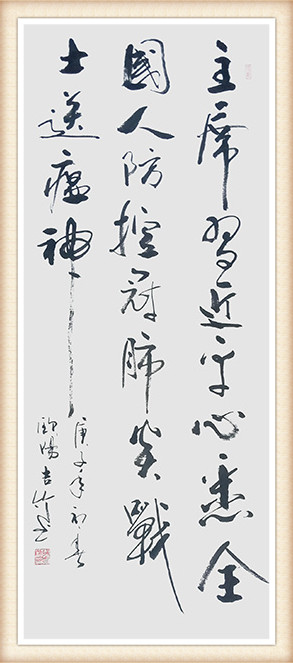 主席習近平心悉全
國人防控冠肺炎戰
士送瘟神
庚子年初春
歐陽吉